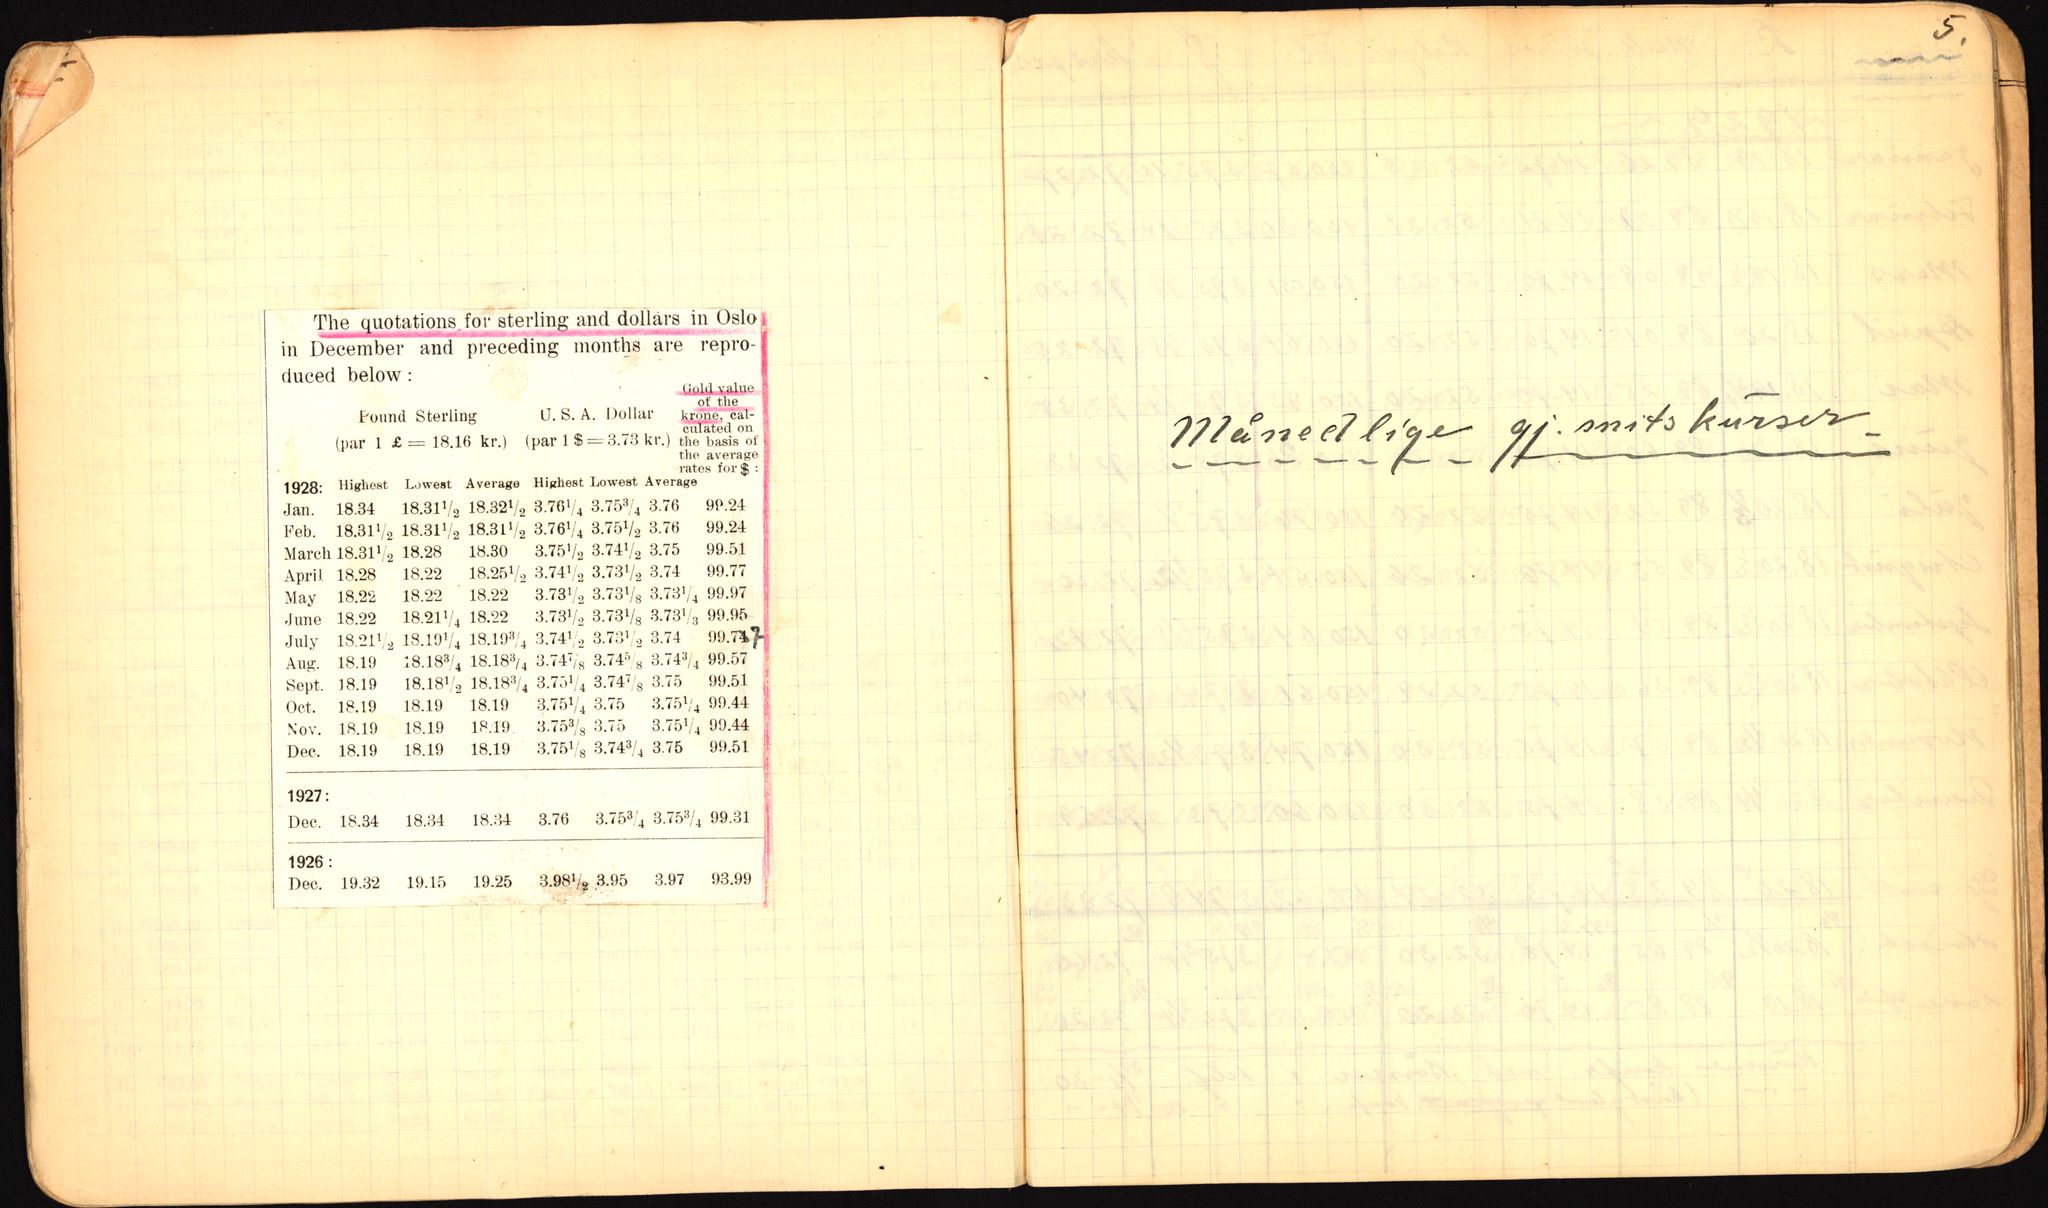 The quotations for sterling and dollars in Oslo
in December and preceding months are repro-
duced below:
Pound Sterling
(par 1 £ = 18.16 kr.)
U. S. A. Dollar
(par 1 $ = 3.73 kr.)
Gold value
of the
krone, cal-
culated on
the basis of
the average
rates for $ :
1928: Highest Lowest Average Highest Lowest Average
Jan. 18.34 18.31 1/2 18.32 1/2 3.76 1/4 3.75 3/4 3.76 99.24
Feb. 18.31 1/2 18.31 1/2 18.31 1/2 3.76 1/4 3.75 1/2 3.76 99.24
March 18.31 1/2 18.28 18.30 3.75 1/2 3.74 1/2 3.75 99.51
April 18.28 18.22 18.25 1/2 3.74 1/2 3.73 1/2 3.74 99.77
May 18.22 18.22 18.22 3.73 1/2 3.73 1/8 3.73 1/4 99.97
June 18.22 18.21 1/4 18.22 3.73 1/2 3.73 1/8 3.73 1/3 99.95
July 18.21 1/2 18.19 1/4 18.19 3/4 3.74 1/2 3.73 1/2 3.74 99.77
Aug. 18.19 18.18 3/4 18.18 3/4 3.74 7/8 3.74 5/8 3.74 3/4 99.57
Sept. 18.19 18.18 1/2 18.18 3/4 3.75 1/4 3.74 7/8 3.75 99.51
Oct. 18.19 18.19 18.19 3.75 1/4 3.75 3.75 1/4 99.44
Nov. 18.19 18.19 18.19 3.75 3/8 3.75 3.75 1/4 99.44
Dec. 18.19 18.19 18.19 3.75 1/8 3.74 3/4 3.75 99.51
1927:
Dec. 18.34 18.34 18.34 3.76 3.75 3/4 3.75 3/4 99.31
1926:
Dec. 19.32 19.15 19.25 3.98 1/2 3.95 3.97 93.99
5.
Månedlige gj. snitskurser